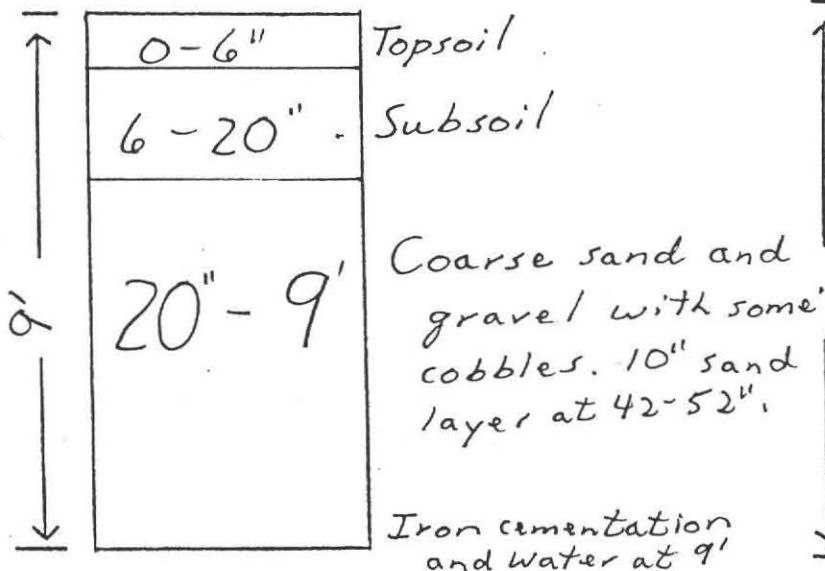 0-6" Topsoil.
6-20". Subsoil
9'
20"- 9'
Coarse sand and
gravel with some
cobbles. 10" sand
layer at 42-52".
Iron cementation
and water at 9'